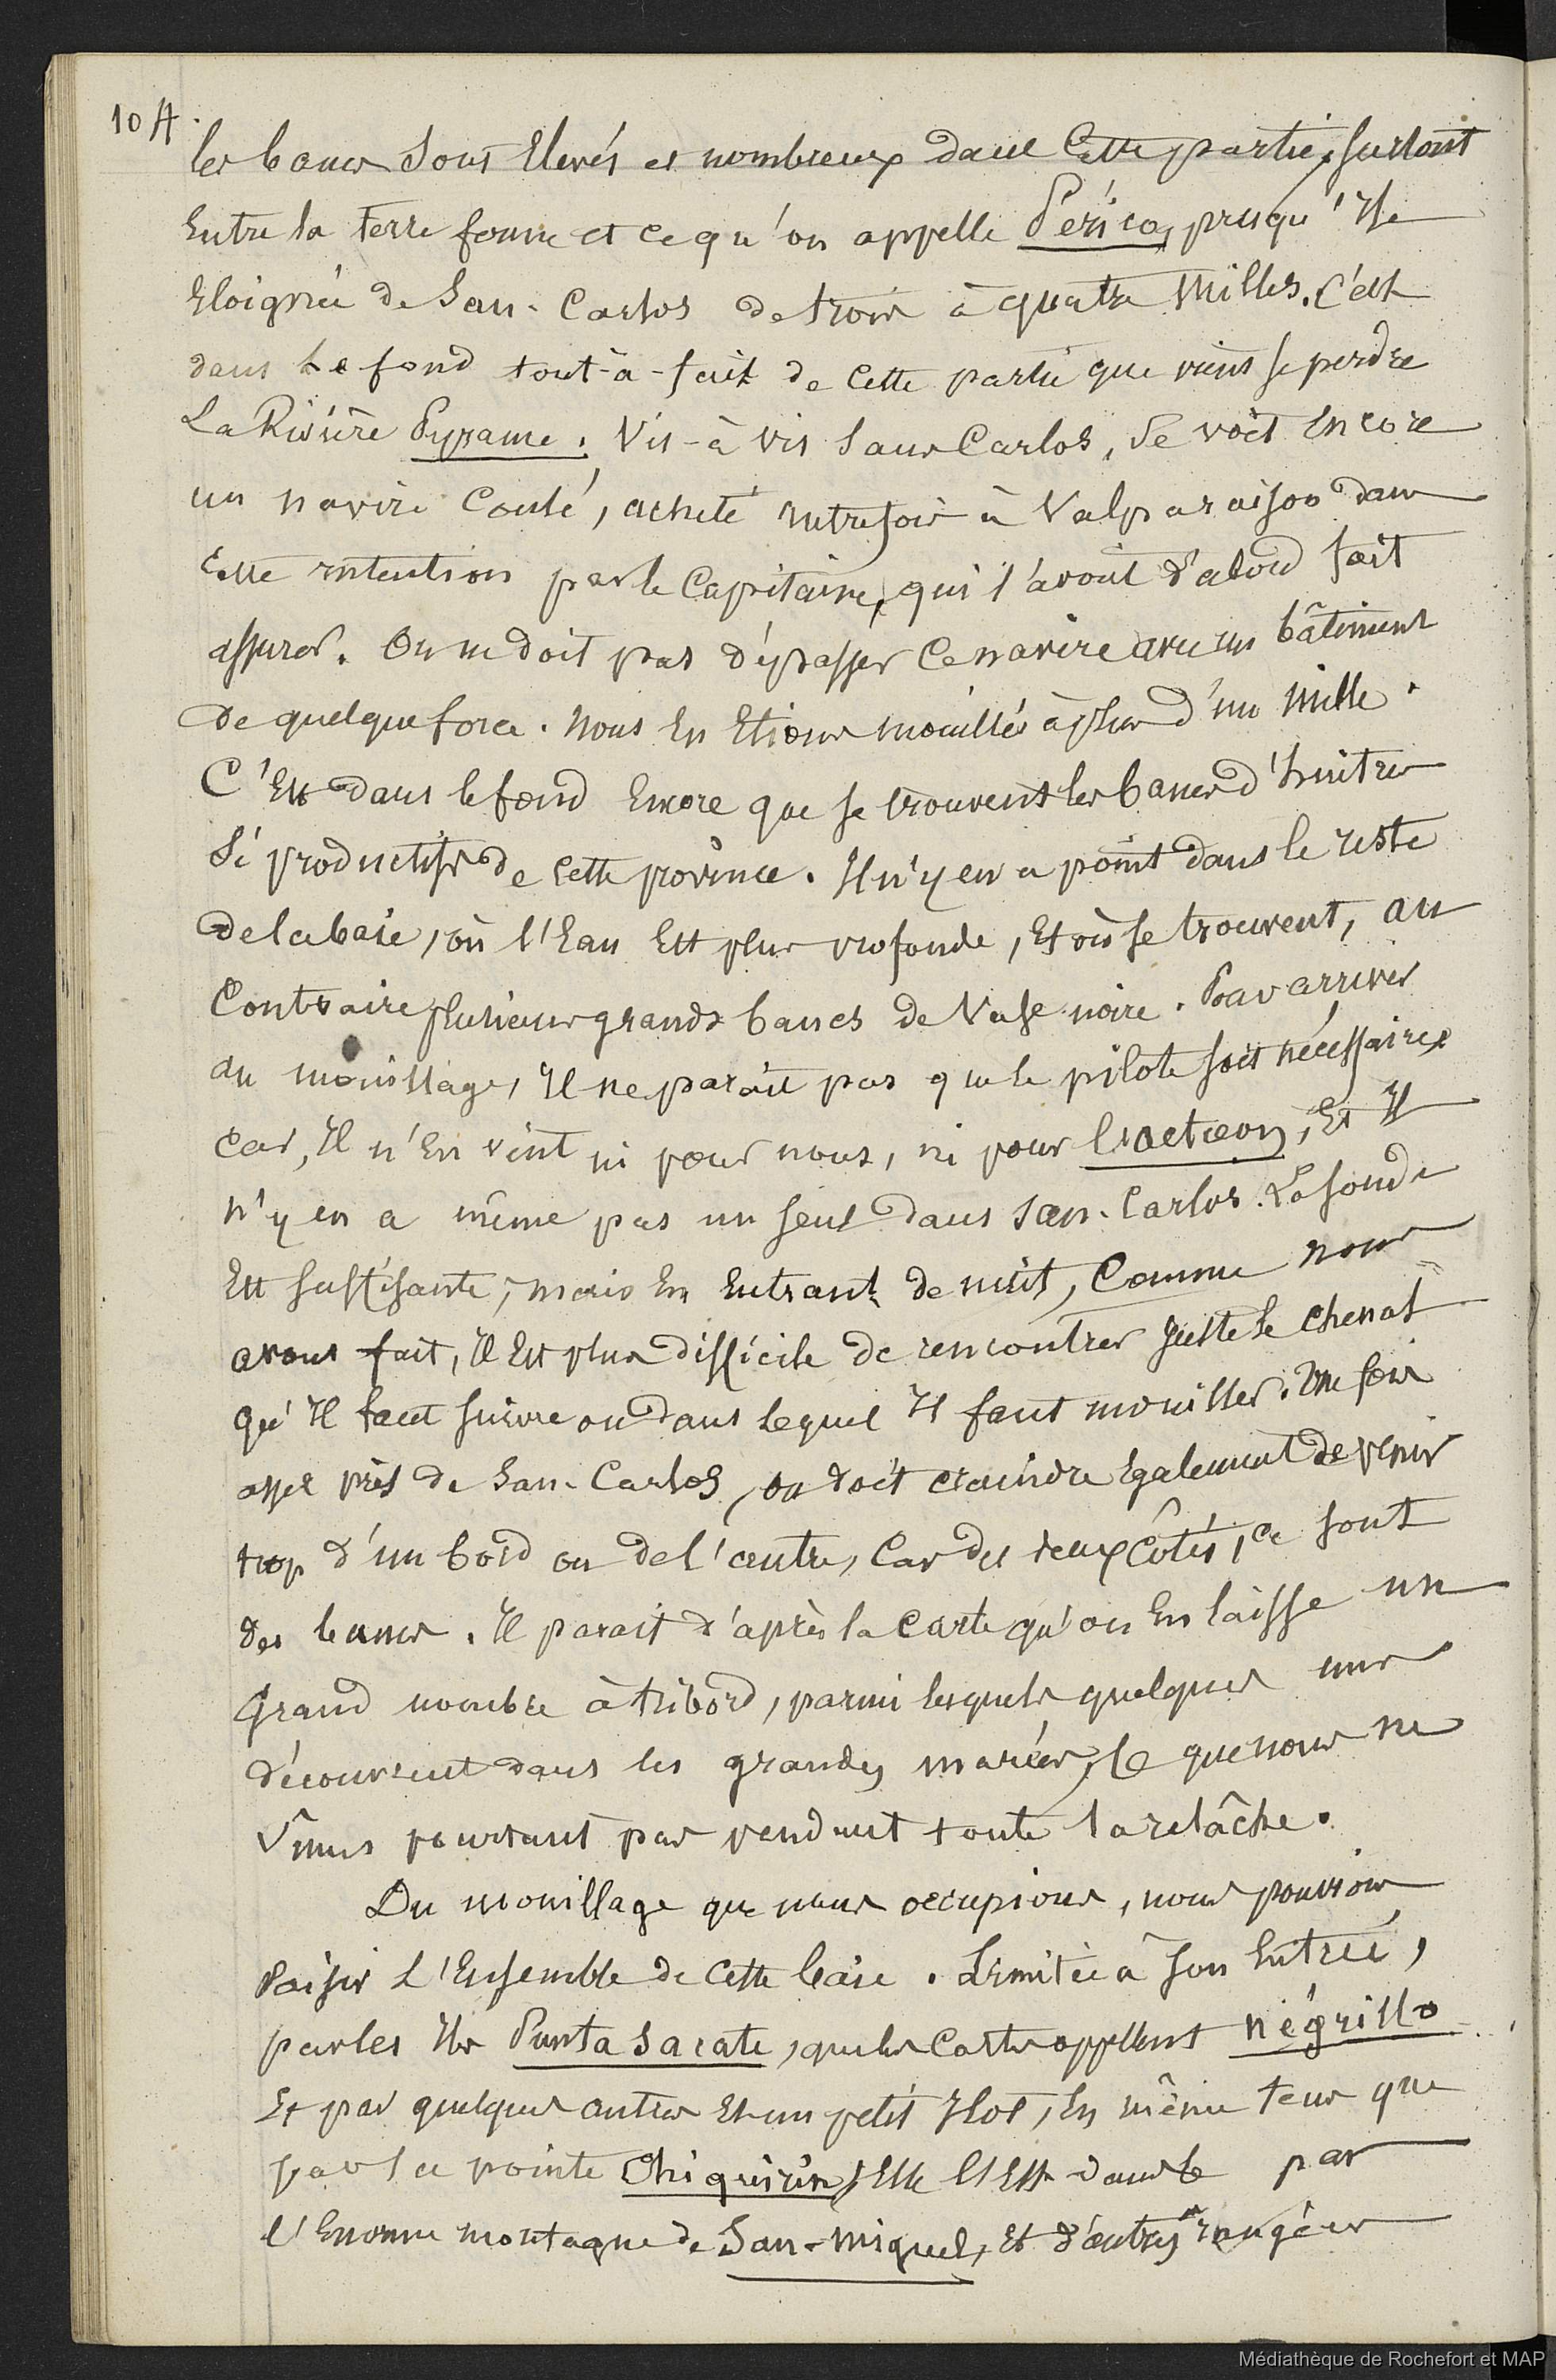 10 A.
les bancs sont Elevés et nombreux dans Cette partie, surtout
Entre la terre ferme et ce qu'on appelle Périco, presqu'Ile
Eloignée de San-Carlos de trois à quatre Milles. C'est
dans Le fond tout-à-fait de Cette partie que vient se perdre
La Rivière Pyrame. Vis-à vis San Carlos, Se voit Encore
un navire Coulé, acheté autrefois à Valparaison dans
Cette intention par le Capitaine, qui l'avait d'abord fait
assurer. On ne doit pas dépasser Ce navire avec un bâtiment
de quelque force. Nous En Etions mouillés à plus d'un Mille.
C'Est dans le fond Encore que se trouvent les bancs d'huîtres
Si productifs de Cette province. Il n'y en a point dans le reste
de la baie, où l'Eau Est plus profonde, Et où se trouvent, au
Contraire plusieurs grands bancs de Vase noire. Pour arriver
au mouillage, Il ne paraît pas que le pilote soit nécessaire,
Car, Il n'En vint ni pour nous, ni pour l'Actœon, Et Il
n'y en a même pas un seul dans San-Carlos. La sonde
Est suffisante, mais En Entrant de nuit, Comme nous
avons fait, Il Est plus difficile de rencontrer juste le Chenal
qu'Il faut suivre ou dans lequel Il faut mouiller. Une fois
assez près de San-Carlos, on doit craindre Egalement de venir
trop d'un bord ou de l'autre, Car des deux Côtés, Ce sont
des bancs. Il parait d'après la Carte qu'on En laisse un
Grand nombre à tribord, parmi lesquels quelques uns
découvrent dans les grandes marées, Ce que nous ne
vîmes pourtant pas pendant toute la relâche.
Du mouillage que nous occupions, nous pouvions
Saisir L'Ensemble de Cette baie. Limitée à son Entrée,
par les Iles Punta Sacate, que les Cartes appellent négrillo
Et par quelques autres Et un petit Ilot, En même tems que
par la pointe Chiquirin, Elle l'Est dans le par
l'Enorme montagne de San-Miguel, Et d'autres rangées
Médiathèque de Rochefort et MAP